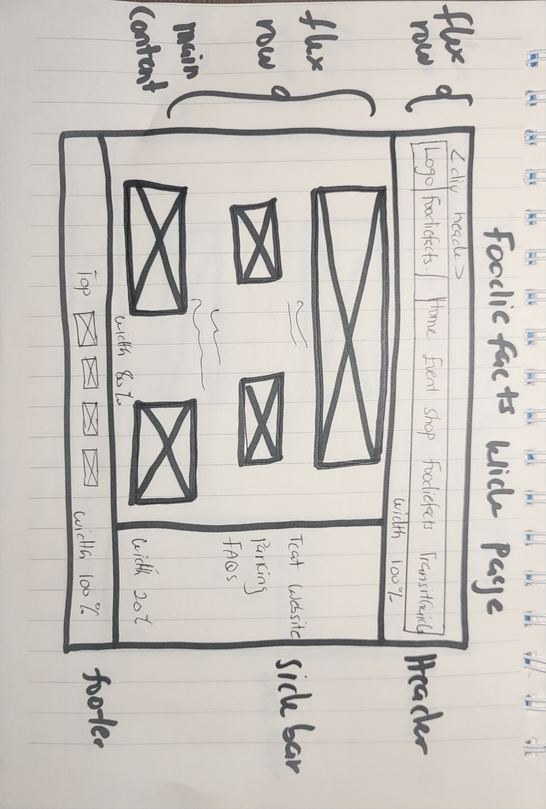 Foodie facts Wide Page
flex row
<div header>
Logo Foodiefacts. Home Event Shop Foodiefacts TransitGuide
width 100%
Header
flex row
main Content
Teat Website
Parking
FAQs
side bar
width 80%
width 20%
Top
width 100%
footer